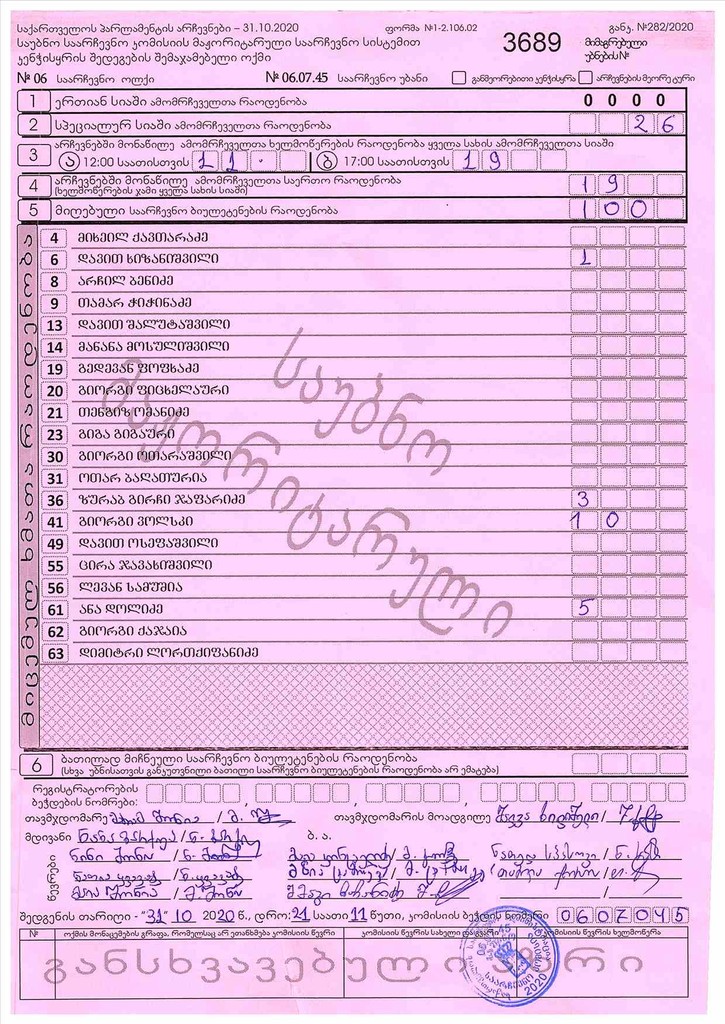 საქართველოს პარლამენტის არჩევნები – 31.10.2020 ფორმა №1-2.106.02 განკ. №282/2020
საუბნო საარჩევნო კომისიის მაჟორიტარული საარჩევნო სისტემით 3689 მიმაგრებული
კენჭისყრის შედეგების შემაჯამებელი ოქმი უბნები №
№ 06 საარჩევნო ოლქი № 06.07.45 საარჩევნო უბანი განმეორებითი კენჭისყრა არჩევნების მეორე ტური
1 ერთიან სიაში ამომრჩეველთა რაოდენობა 0 0 0 0
2 სპეციალურ სიაში ამომრჩეველთა რაოდენობა 2 6
არჩევნებში მონაწილე ამომრჩეველთა ხელმოწერების რაოდენობა ყველა სახის ამომრჩეველთა სიაში
3 ა 12:00 საათისთვის 1 1 ბ 17:00 საათისთვის 1 9
4 არჩევნებში მონაწილე ამომრჩეველთა საერთო რაოდენობა 1 9
(ხელმოწერების ჯამი ყველა სახის სიაში)
5 მიღებული საარჩევნო ბიულეტენების რაოდენობა 1 0 0
მიცემულ ხმათა რაოდენობა
4 მიხეილ ქავთარაძე
6 დავით ხიზანიშვილი 1
8 არჩილ ბენიძე
9 თამარ კიკინაძე
13 დავით შალუტაშვილი
14 მანანა მოსულიშვილი
19 გედევან ფოფხაძე
20 გიორგი ფიცხელაური
21 თენგიზ ომანიძე
23 გიგა გიგაური
30 გიორგი ოთარაშვილი
31 ოთარ ბაღათურია
36 ზურაბ გირჩი ჯაფარიძე 3
41 გიორგი ვოლსკი 1 0
49 დავით ოსეფაშვილი
55 ცირა ჯავახიშვილი
56 ლევან სამუშია
61 ანა დოლიძე 5
62 გიორგი ქაჯაია
63 დიმიტრი ლორთქიფანიძე
საუბნო
მაჟორიტარული
6 ბათილად მიჩნეული საარჩევნო ბიულეტენების რაოდენობა
(სხვა უბნისათვის განკუთვნილი ბათილი საარჩევნო ბიულეტენების რაოდენობა არ ემატება)
რეგისტრატორების
ბეჭდების ნომრები:
თავმჯდომარე თავმჯდომარის მოადგილე
მდივანი ბ. ა.
წევრები
შედგენის თარიღი - "31" 10 2020 წ., დრო: 21 საათი 11 წუთი, კომისიის ბეჭდის ნომერი 0 6 0 7 0 4 5
№ ოქმის მონაცემების გრაფა, რომელსაც არ ეთანხმება კომისიის წევრი კომისიის წევრის სახელი და გვარი კომისიის წევრის ხელმოწერა
განსხვავებული აზრი